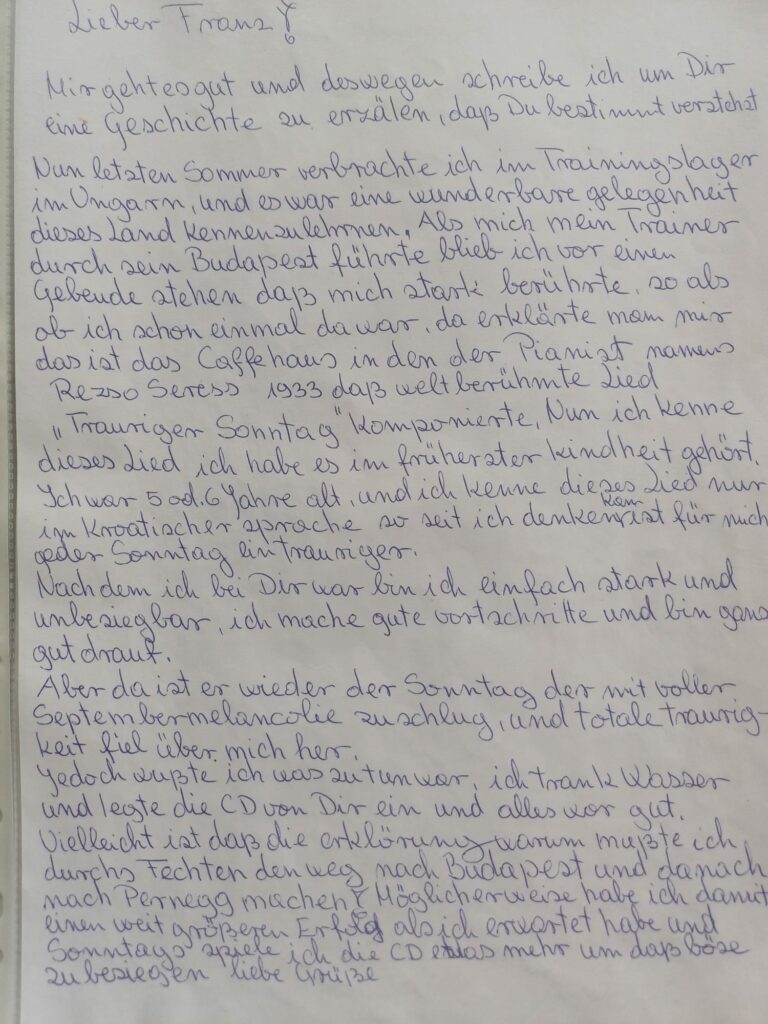 Lieber Franz!
Mir geht es gut und deswegen schreibe ich um Dir
eine Geschichte zu erzälen, daß Du bestimmt verstehst
Nun letzten Sommer verbrachte ich im Trainingslager
im Ungarn, und es war eine wunderbare gelegenheit
dieses Land kennenzulehrnen. Als mich mein Trainer
durch sein Budapest führte blieb ich vor einen
Gebeude stehen daß mich stark berührte, so als
ob ich schon einmal da war, da erklärte man mir
das ist das Caffehaus in den der Pianist namens
Rezso Seress 1933 daß weltberühmte Lied
„Trauriger Sonntag" komponierte. Nun ich kenne
dieses Lied ich habe es im früherster kindheit gehört.
Ich war 5 od. 6 Jahre alt, und ich kenne dieses Lied nur
im Kroatischer sprache so seit ich denken kann ist für mich
jeder Sonntag ein trauriger.
Nachdem ich bei Dir war bin ich einfach stark und
unbesiegbar, ich mache gute vortschritte und bin ganz
gut drauf.
Aber da ist er wieder der Sonntag der mit voller
Septembermelancolie zuschlug, und totale traurig-
keit fiel über mich her.
Jedoch wußte ich was zu tun war, ich trank Wasser
und legte die CD von Dir ein und alles war gut.
Vielleicht ist daß die erklörung warum mußte ich
durchs Fechten den weg nach Budapest und danach
nach Pernegg machen? Möglicherweise habe ich damit
einen weit größeren Erfolg als ich erwartet habe und
Sonntags spiele ich die CD etwas mehr um daß böse
zu besiegen liebe Grüße